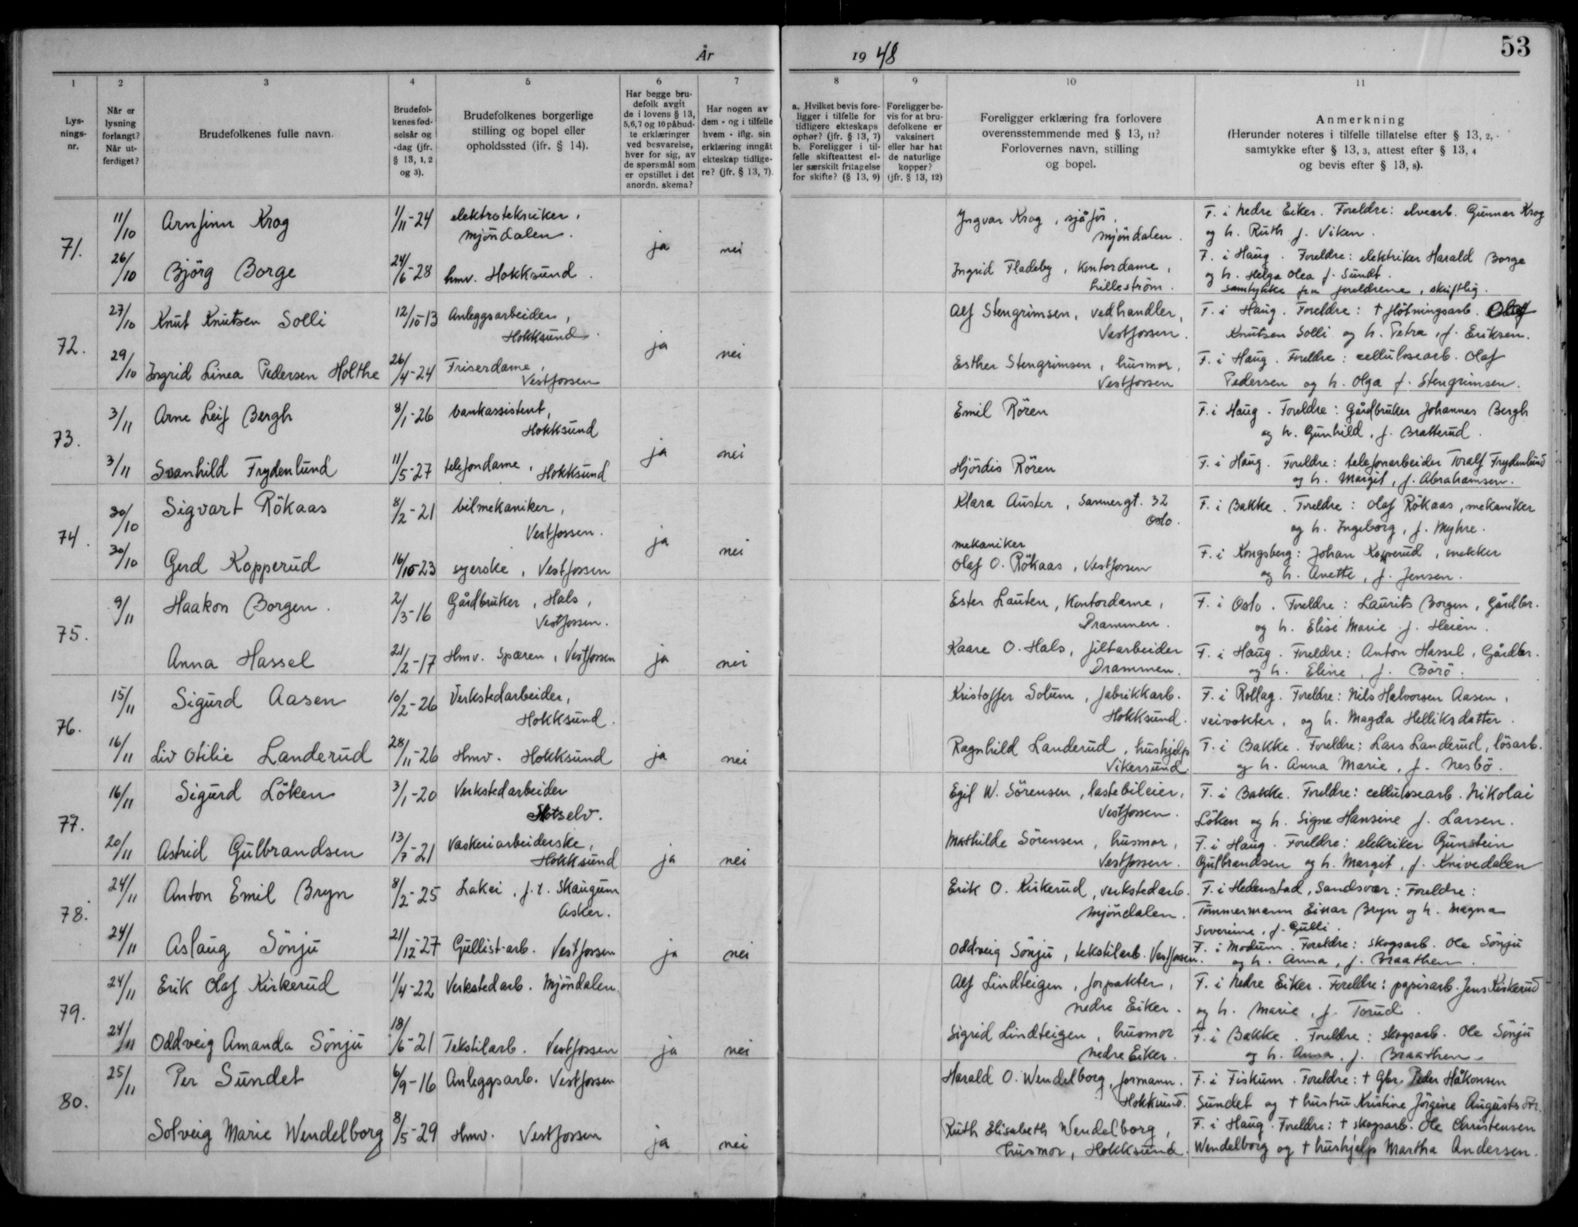 År 1948
53
1 2 3 4 5 6 7 8 9 10 11
Lys-
nings-
nr.
Når er
lysning
forlangt?
Når ut-
ferdiget?
Brudefolkenes fulle navn.
Brudefol-
kenes fød-
selsår og
-dag (jfr.
§ 13, 1, 2
og 3).
Brudefolkenes borgerlige
stilling og bopel eller
opholdssted (ifr. § 14).
Har begge bru-
defolk avgit
de i lovens § 13,
5,6,7 og 10 påbud-
te erklæringer
ved besvarelse,
hver for sig, av
de spørsmål som
er opstillet i det
anordn. skema?
Har nogen av
dem - og i tilfelle
hvem - iflg. sin
erklæring inngåt
ekteskap tidlige-
re? (jfr. § 13, 7).
a. Hvilket bevis fore-
ligger i tilfelle for
tidligere ekteskaps
ophør? (jfr. § 13, 7)
b. Foreligger i til-
felle skifteattest el-
ler særskilt fritagelse
for skifte? (§ 13, 9)
Foreligger be-
vis for at bru-
defolkene er
vaksinert
eller har hat
de naturlige
kopper?
(jfr. § 13, 12)
Foreligger erklæring fra forlovere
overensstemmende med § 13, 11?
Forlovernes navn, stilling
og bopel.
Anmerkning
(Herunder noteres i tilfelle tillatelse efter § 13, 2, -
samtykke efter § 13, 3, attest efter § 13, 4
og bevis efter § 13, 8).
71.
11/10 Arnfinn Krog 1/11-24 elektrotekniker,
Mjöndalen.
ja nei
Yngvar Krog, sjåför.
Mjöndalen.
F. i Nedre Eiker. Foreldre: elvearb. Gunnar Krog
og h. Ruth f. Viken.
26/10 Björg Borge 24/6-28 hmv. Hokksund.
Ingrid Fladeby, kontordame,
Lilleström.
F. i Haug. Foreldre: elektriker Harald Borge
og h. Helga Olea f. Sundt.
samtykke fra foreldrene, skriftlig.
72.
27/10 Knut Knutsen Solli 12/10-13 Anleggsarbeider,
Hokksund
ja nei
Alf Stengrimsen, vedhandler,
Vestfossen.
F. i Haug. Foreldre: † flötningsarb. Olaf
Knutsen Solli og h. Petra, f. Eriksen.
29/10 Ingrid Linea Pedersen Holthe 26/4-24 Friserdame,
Vestfossen
Esther Stengrimsen, husmor,
Vestfossen
F. i Haug. Foreldre: cellulosearb. Olaf
Pedersen og h. Olga f. Stengrimsen.
73.
3/11 Arne Leif Bergh 8/1-26 bankassistent,
Hokksund
ja nei
Emil Rören
F. i Haug. Foreldre: Gårdbruker Johannes Bergh
og h. Gunhild, f. Bratterud.
3/11 Svanhild Frydenlund 11/5-27 telefondame, Hokksund
Hjördis Rören
F. i Haug. Foreldre: telefonarbeider Toralf Frydenlund
og h. Margit, f. Abrahamsen.
74.
30/10 Sigvart Rökaas 8/2-21 bilmekaniker,
Vestfossen.
ja nei
Klara Auster, Sannergt. 32
Oslo.
F. i Bakke. Foreldre: Olaf Rökaas, mekaniker
og h. Ingeborg, f. Myhre.
30/10 Gerd Kopperud 16/10-23 syerske, Vestfossen
mekaniker
Olaf O. Rökaas, Vestfossen
F. i Kongsberg: Johan Kopperud, snekker
og h. Anette, f. Jensen.
75.
9/11 Haakon Borgen. 2/3-16 Gårdbruker, Hals,
Vestfossen.
Ester Lauten, kontordame,
Drammen.
F. i Oslo. Foreldre: Laurits Borgen, Gårdbr.
og h. Elise Marie f. Heien.
Anna Hassel 21/2-17 Hmv. Spæren, Vestfossen ja nei
Kaare O. Hals, filtarbeider
Drammen.
F. i Haug. Foreldre: Anton Hassel, Gårdbr.
og h. Eline, f. Börö.
76.
15/11 Sigurd Aasen 10/2-26 Verkstedarbeider,
Hokksund.
Kristoffer Solum, fabrikkarb.
Hokksund.
F. i Rollag. Foreldre: Nils Halvorsen Aasen,
veivokter, og h. Magda Helliksdatter.
16/11 Liv Otilie Landerud 28/11-26 Hmv. Hokksund ja nei
Ragnhild Landerud, hushjelp
Vikersund
F. i Bakke. Foreldre: Lars Landerud, lösarb.
og h. Anna Marie, f. Nesbö.
77.
16/11 Sigurd Löken 3/1-20 Verkstedarbeider
Skotselv.
Egil W. Sörensen, lastebileier,
Vestfossen.
F. i Bakke. Foreldre: cellulosearb. Nikolai
Löken og h. Signe Hansine f. Larsen.
20/11 Astrid Gulbrandsen 13/7-21 Vaskeriarbeiderske,
Hokksund ja nei
Mathilde Sörensen, husmor,
Vestfossen.
F. i Haug. Foreldre: elektriker Gunstein
Gulbrandsen og h. Margit, f. Knivedalen
78.
24/11 Anton Emil Bryn 8/2-25 Lakei, f.t. Skaugum
Asker.
Erik O. Kirkerud, verkstedarb.
Mjöndalen.
F. i Hedenstad, Sandsvær: Foreldre:
Tømmermann Einar Bryn og h. Magna
Severine, f. Gulli.
24/11 Aslaug Sönju 21/12-27 Gullist-arb. Vestfossen ja nei
Oddveig Sönju, tekstilarb. Vestfossen.
F. i Modum. Foreldre: skogsarb. Ole Sönju
og h. Anna, f. Braathen.
79.
24/11 Erik Olaf Kirkerud 1/4-22 Verkstedarb. Mjöndalen.
Alf Lindteigen, forpakter,
Nedre Eiker.
F. i Nedre Eiker. Foreldre: papirarb. Jens Kirkerud
og h. Marie, f. Torud.
24/11 Oddveig Amanda Sönju 18/6-21 Tekstilarb. Vestfossen ja nei
Sigrid Lindteigen, husmor
Nedre Eiker.
F. i Bakke. Foreldre: skogsarb. Ole Sönju
og h. Anna, f. Braathen.
80.
25/11 Per Sundet 6/9-16 Anleggsarb. Vestfossen
Harald O. Wendelborg, formann.
Hokksund.
F. i Fiskum. Foreldre: † Gbr. Peder Håkonsen
Sundet og † hustru Kristine Jörgine Augusts dtr.
Solveig Marie Wendelborg 8/5-29 Hmv. Vestfossen ja nei
Ruth Elisabeth Wendelborg,
husmor, Hokksund.
F. i Haug. Foreldre: † skogsarb. Ole Christensen
Wendelborg og † hushjelp Martha Andersen.